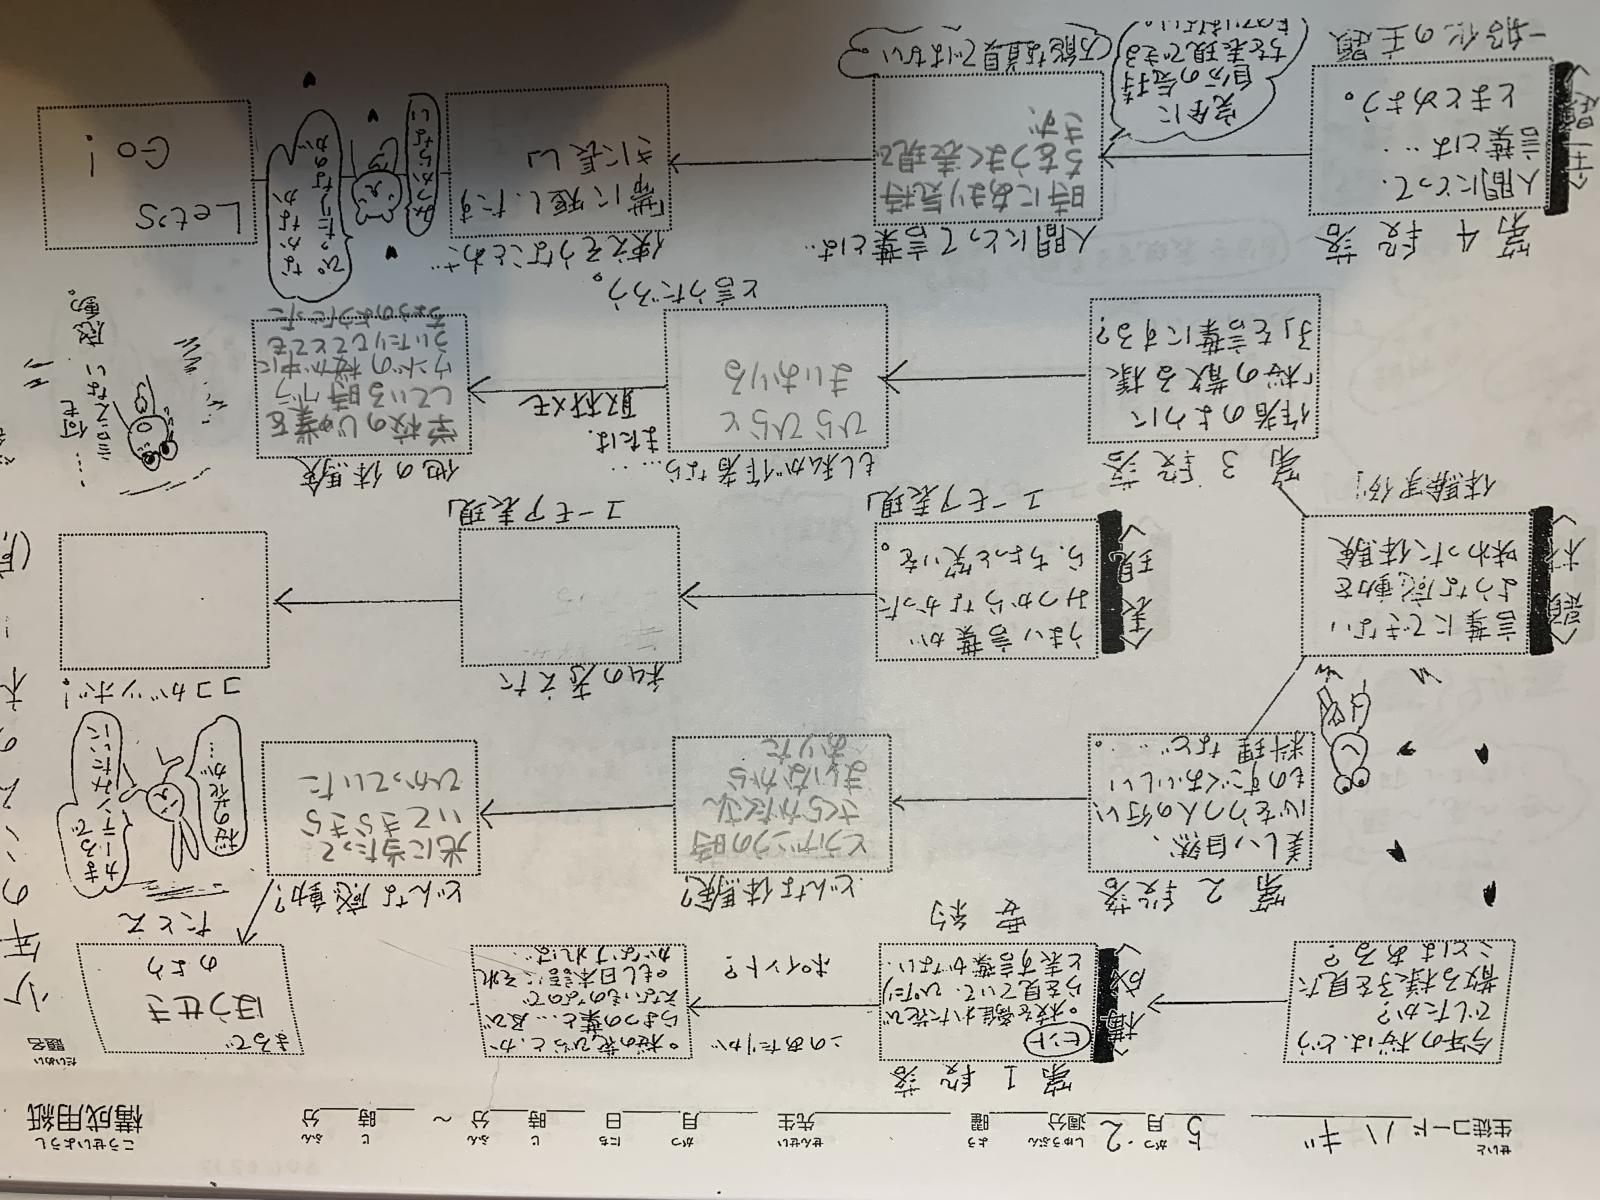 構成用紙
こうせいようし
生徒コード ハギ
せいと
5月2週分
がつ しゅうぶん
曜
よう
先生
せんせい
月 日 時 分 ～ 時 分
がつ にち じ ふん じ ふん
題名
だいめい
少年の
今年の桜は、どう
でしたか?
散る様子を見た
ことはある?
〈構成〉
第1段落
ヒント
と表す言葉がない
要約
このあたりが
ポイント?
もし日本語にそれ
がなければ…
まるで
ほうせき
のよう
たとえ
第2段落
美しい自然、
心をうつ人の行い
ものすごくおいしい
料理など…。
どんな体験?
さくらがたくさん
まいながら
おりた
どんな感動?
光に当たって
いてきらきら
ひかっていた
桜の花が…
まるで
カーテンみたいに
〈題材〉
言葉にできない
ような感動を
味わった体験
体験実例!
〈表現〉
うまい言葉が
みつからなかった
ら、ちょっと笑いを。
ユーモア表現!
私の考えた
ユーモア表現!
ココがツボ!
第3段落
作者のように
「桜の散る様
子」を言葉にする?
もし私が作者なら…
ひらひらと
まいおりる
と言うだろう。
または、
取材メモ
他の体験
学校のじゅ業を
している時、グラ
ウンドの桜が中に
…何も
言えない
感動。
第4段落
〈主題〉
人間にとって、
言葉とは…
とまとめよう。
一般化の主題
完全に
自分の気持
ちを表現できる
人間にとって言葉とは…
時にあまり気持
ちをうまく表現で
きず、
万能な道具ではない
使えそうなことわざ
「帯に短し、たす
きに長し」
みつからない
なかなか
ぴったりなのが
Let's
Go!